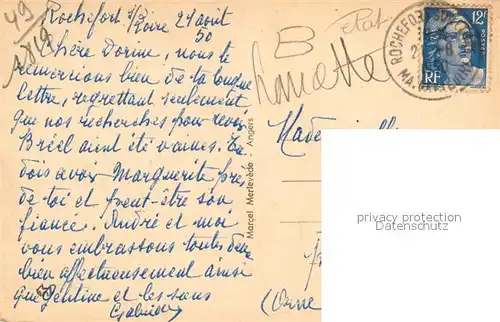 49
A719
Rochefort s/Loire 21 août
50
Chère Dorine, nous te
remercions bien de ta longue
lettre, regrettant seulement
que nos recherches pour
Bréel aient été vaines. Tu
dois avoir Marguerite près
de toi et peut-être son
fiancé. André et moi
vous embrassons toutes deux
bien affectueusement ainsi
que et les sœurs
Gabrielle
B
état
Marcel Merlevède - Angers
ROCHEFORT-SUR-LOIRE
12F
POSTES
RF
privacy protection
Datenschutz
(Orne